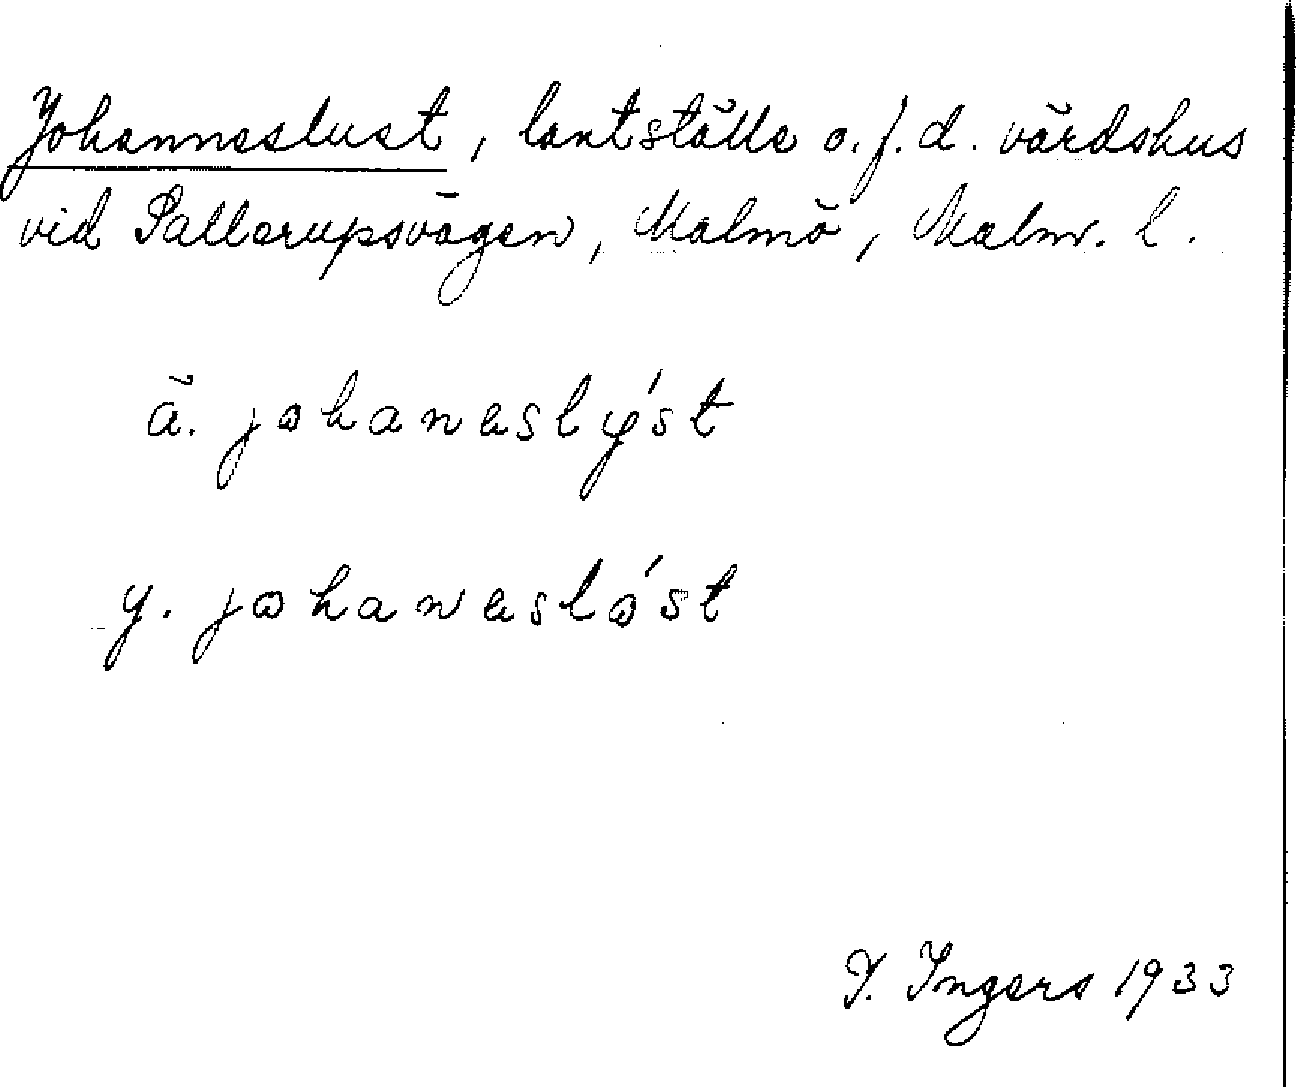 Johanneslust, lantställe o. f. d. värdshus
vid Sallerupsvägen, Malmö, Malm. l.
ä. johanesly´st
y. johaneslo´st
I. Ingers 1933